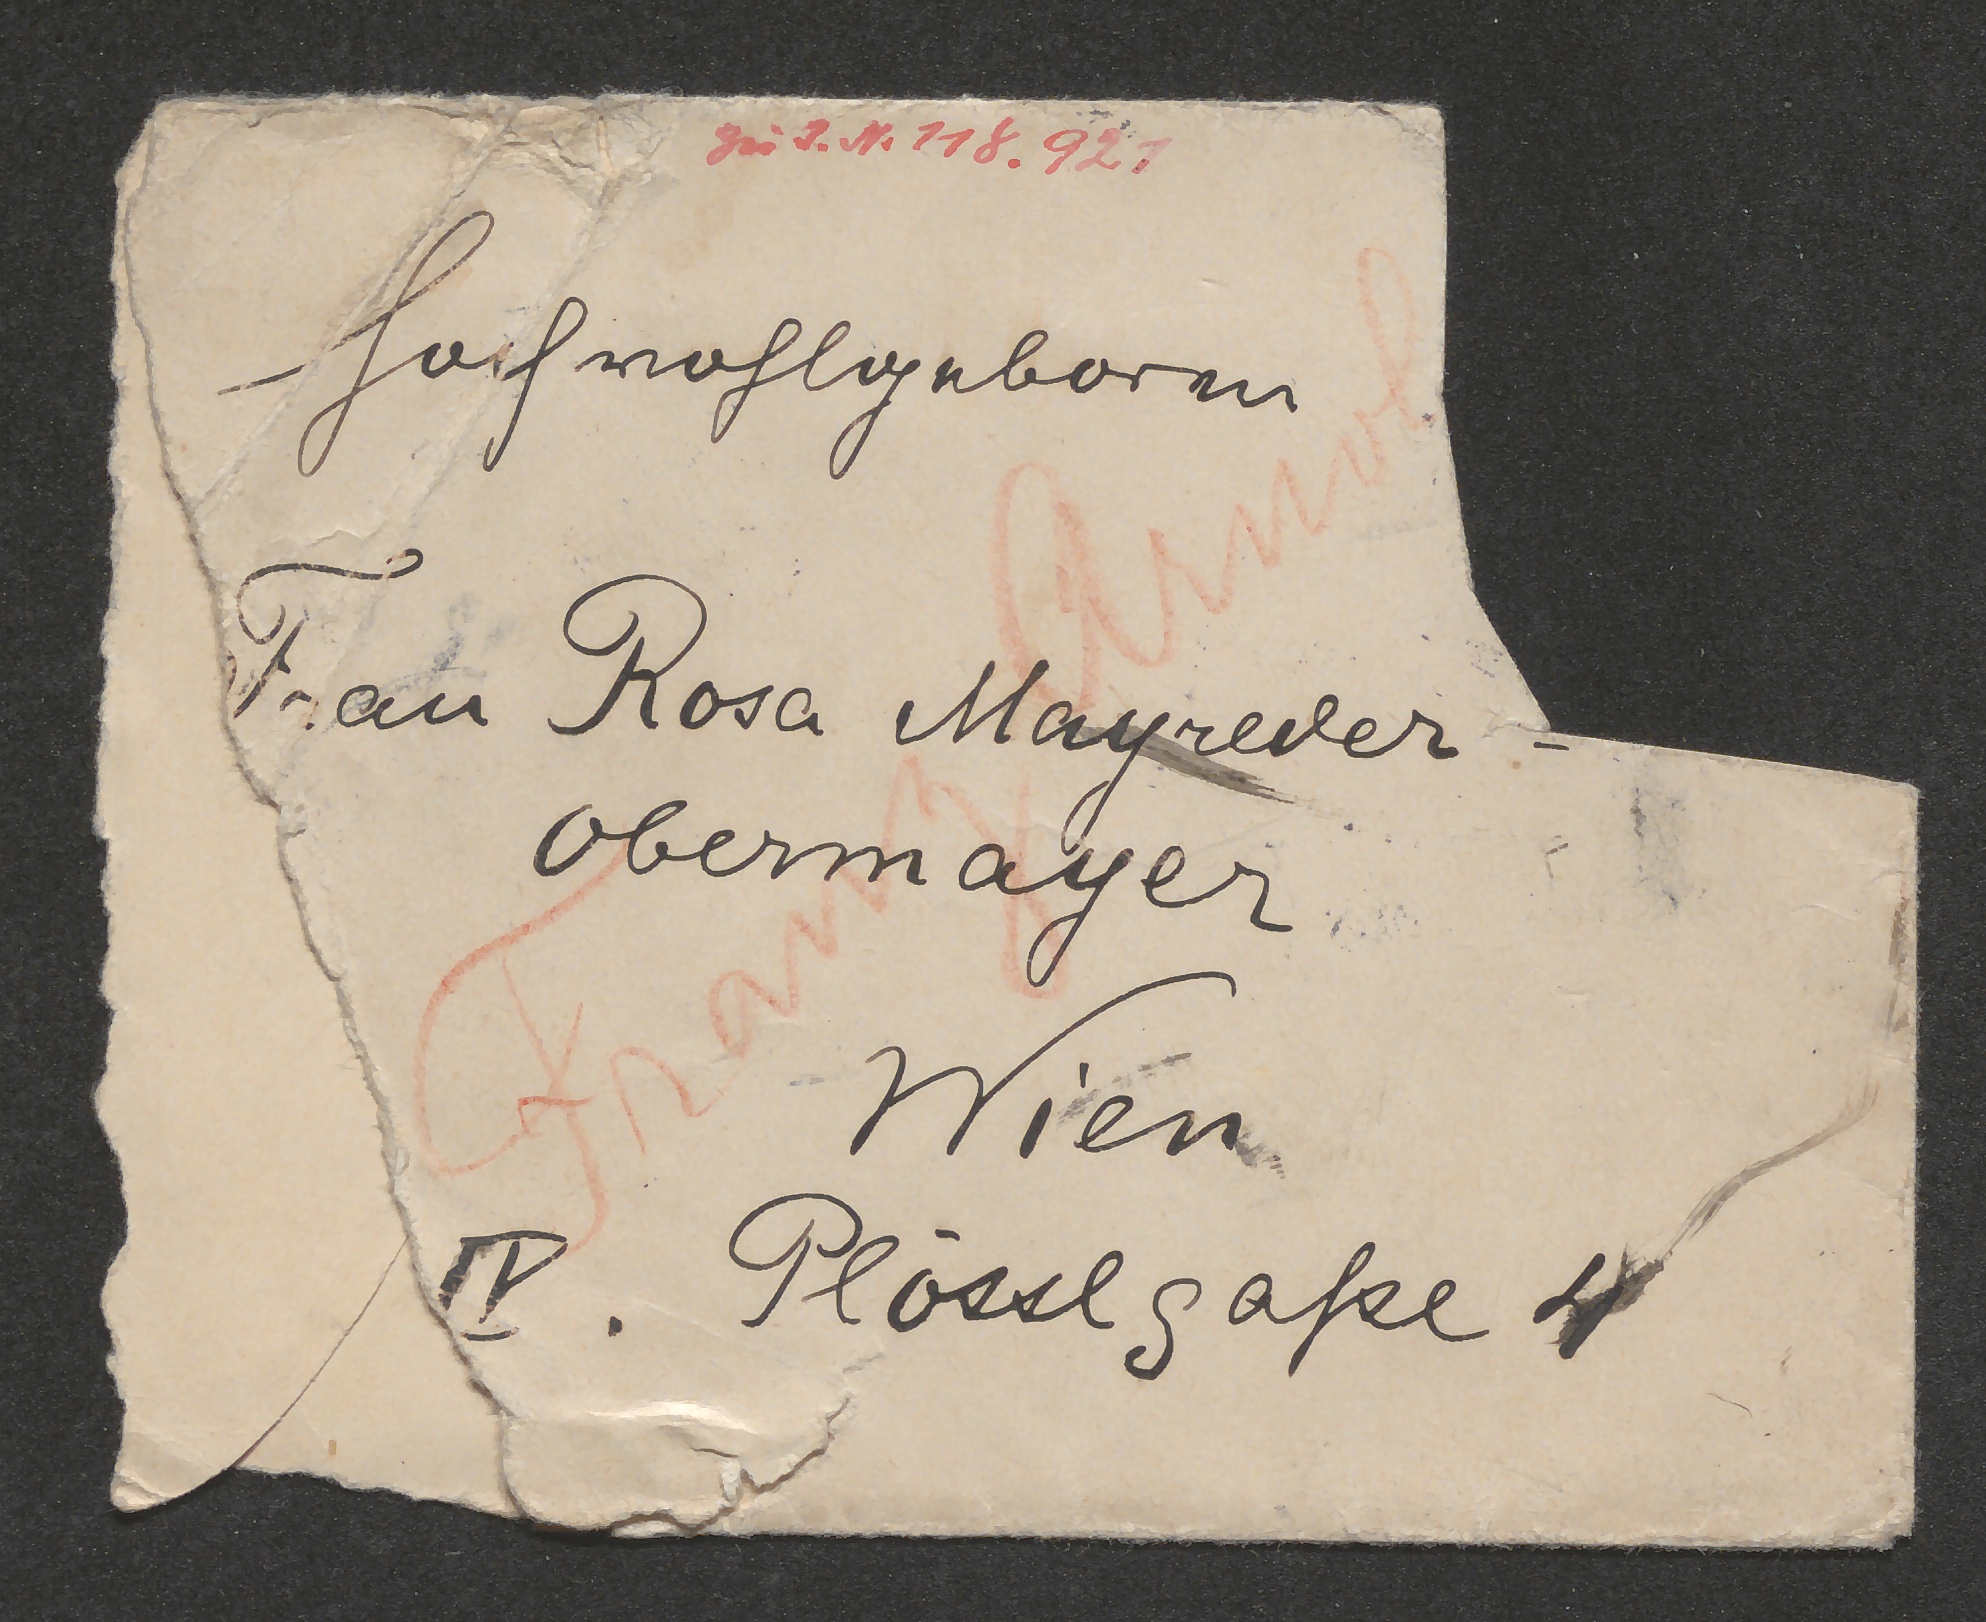 zu I. N. 118.921
Hochwohlgeboren
Frau Rosa Mayreder-
Obermayer
Wien
IV. Plösslgaße 4
Franz Arnol